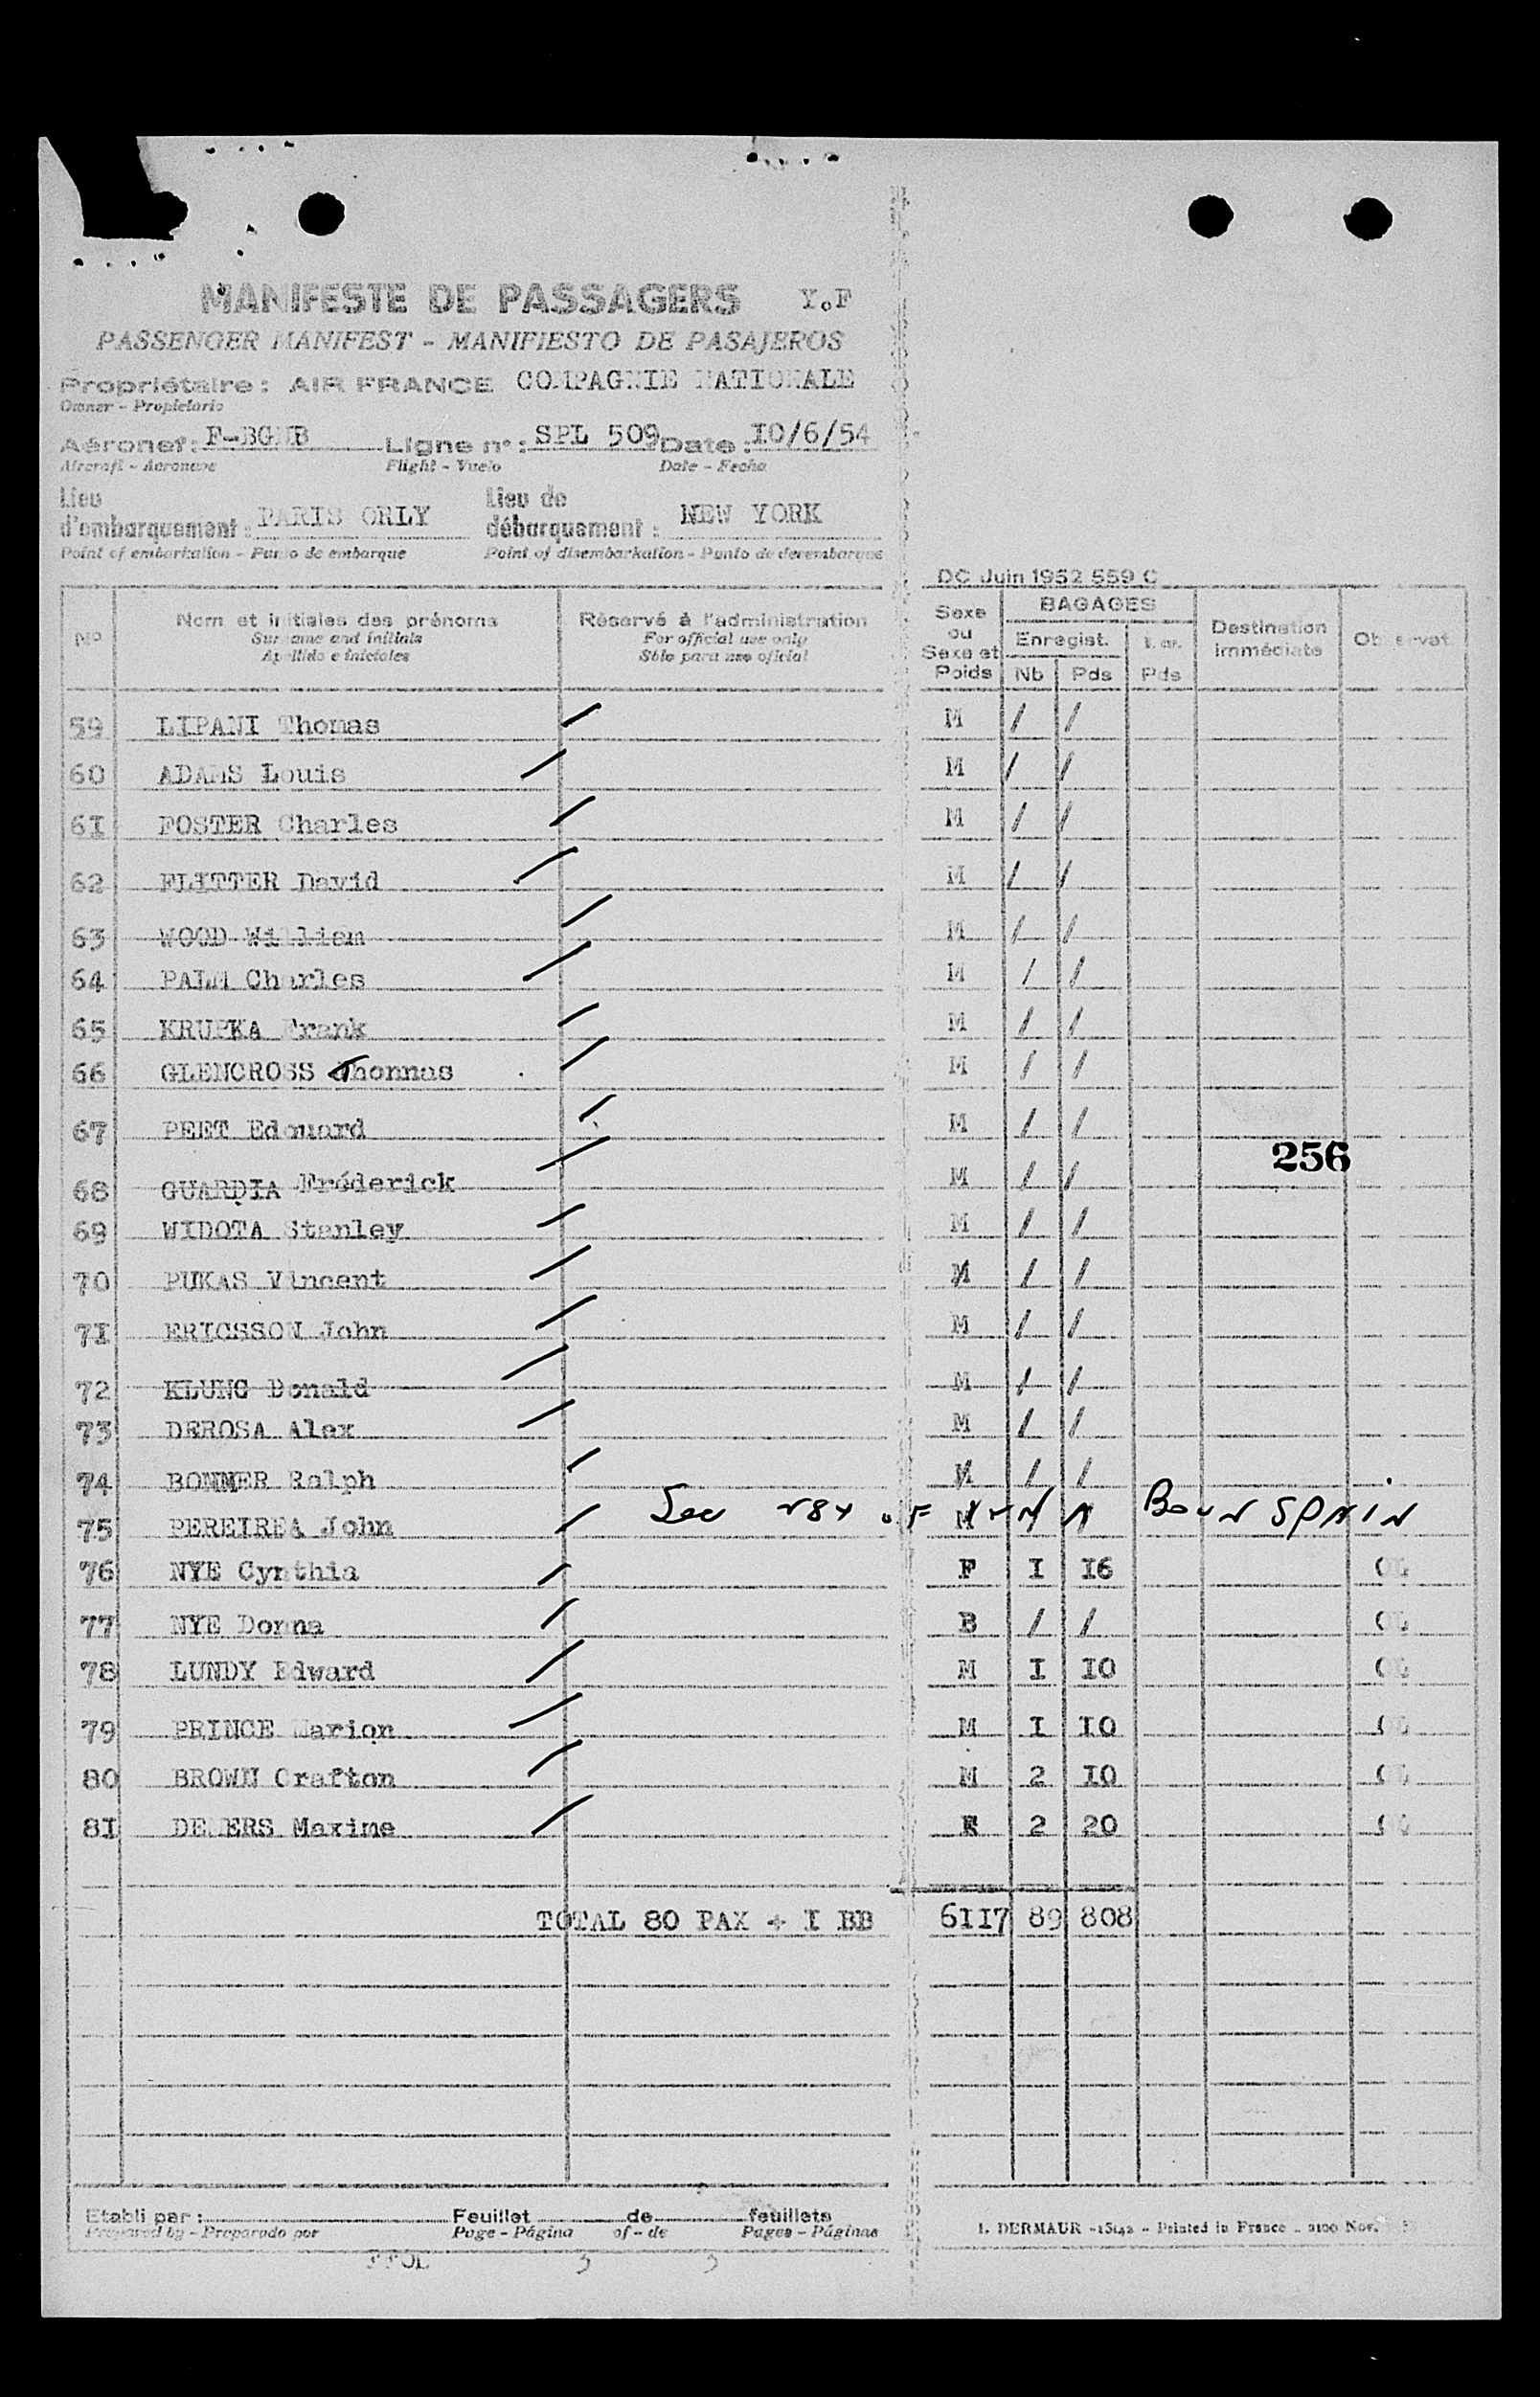 MANIFESTE DE PASSAGERS Y.F
PASSENGER MANIFEST - MANIFIESTO DE PASAJEROS
Propriétaire : AIR FRANCE COMPAGNIE NATIONALE
Owner - Propietario
Aéronef : F-BGNB Ligne n° : SPL 509 Date : I0/6/54
Aircraft - Aeronave Flight - Vuelo Date - Fecha
Lieu d'embarquement : PARIS ORLY Lieu de débarquement : NEW YORK
Point of embarkation - Punto de embarque Point of disembarkation - Punto de desembarque
DC Juin 1952 559 C
N° Nom et initiales des prénoms Réservé à l'administration Sexe ou Sexe et Poids BAGAGES Destination immédiate Observat.
Surname and initials For official use only Enregist.
Apellido e iniciales Sólo para uso oficial Nb Pds Pds
59 LIPANI Thomas / M / /
60 ADAMS Louis / M / /
6I FOSTER Charles / M / /
62 FLITTER David / M / /
63 WOOD William / M / /
64 PALM Charles / M / /
65 KRUPKA Frank / M / /
66 GLENCROSS Thonnas / M / /
67 PEET Edouard / M / /
256
68 GUARDIA Fréderick / M / /
69 WIDOTA Stanley / M / /
70 PUKAS Vincent / M / /
7I ERICSSON John / M / /
72 KLUNG Donald / M / /
73 DEROSA Alex / M / /
74 BOMMER Ralph / M / /
75 PEREIREA John / M Born SPAIN
76 NYE Cynthia / F I I6 OL
77 NYE Donna / B / / OL
78 LUNDY Edward / M I I0 OL
79 PRINCE Marion / M I I0 OL
80 BROWN Crafton / M 2 I0 OL
8I DEMERS Maxime / F 2 20 OL
TOTAL 80 PAX + I BB 6II7 89 808
Etabli par : Feuillet de feuillets
Prepared by - Preparado por Page - Página of - de Pages - Páginas
I. DERMAUR - 15142 - Printed in France - 2100 Nov.
FFOL 3 3